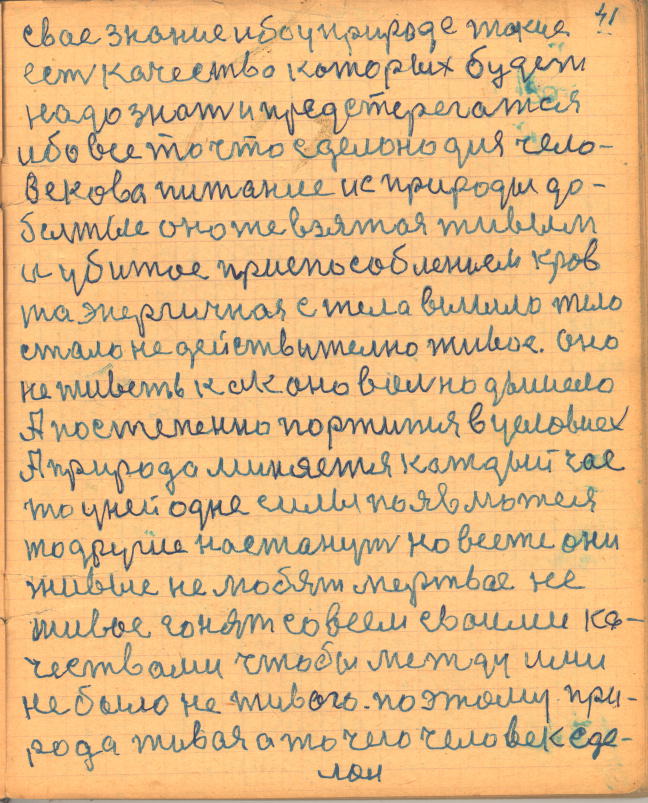 41
свое знание ибо у природе такие
ест качество которых будет
надо знат и предстерегатся
ибо все то что сделоно для чело-
векова питание ис природы до-
битые оно же взятая живым
и убитое приспособлением кров
та энергичная с тела вылило тело
стало не действително живое. оно
не живеть как оно волно дышело
А постепенно портится в условиех
А природа миняется каждый час
то у ней одне силы появляются
то другие настанут но все же они
живые не любят мертвое не
живое гонят совсем своими ка-
чествами чтобы между ими
не было не живого. поэтому при-
рода живая а то чего человек сде-
лал